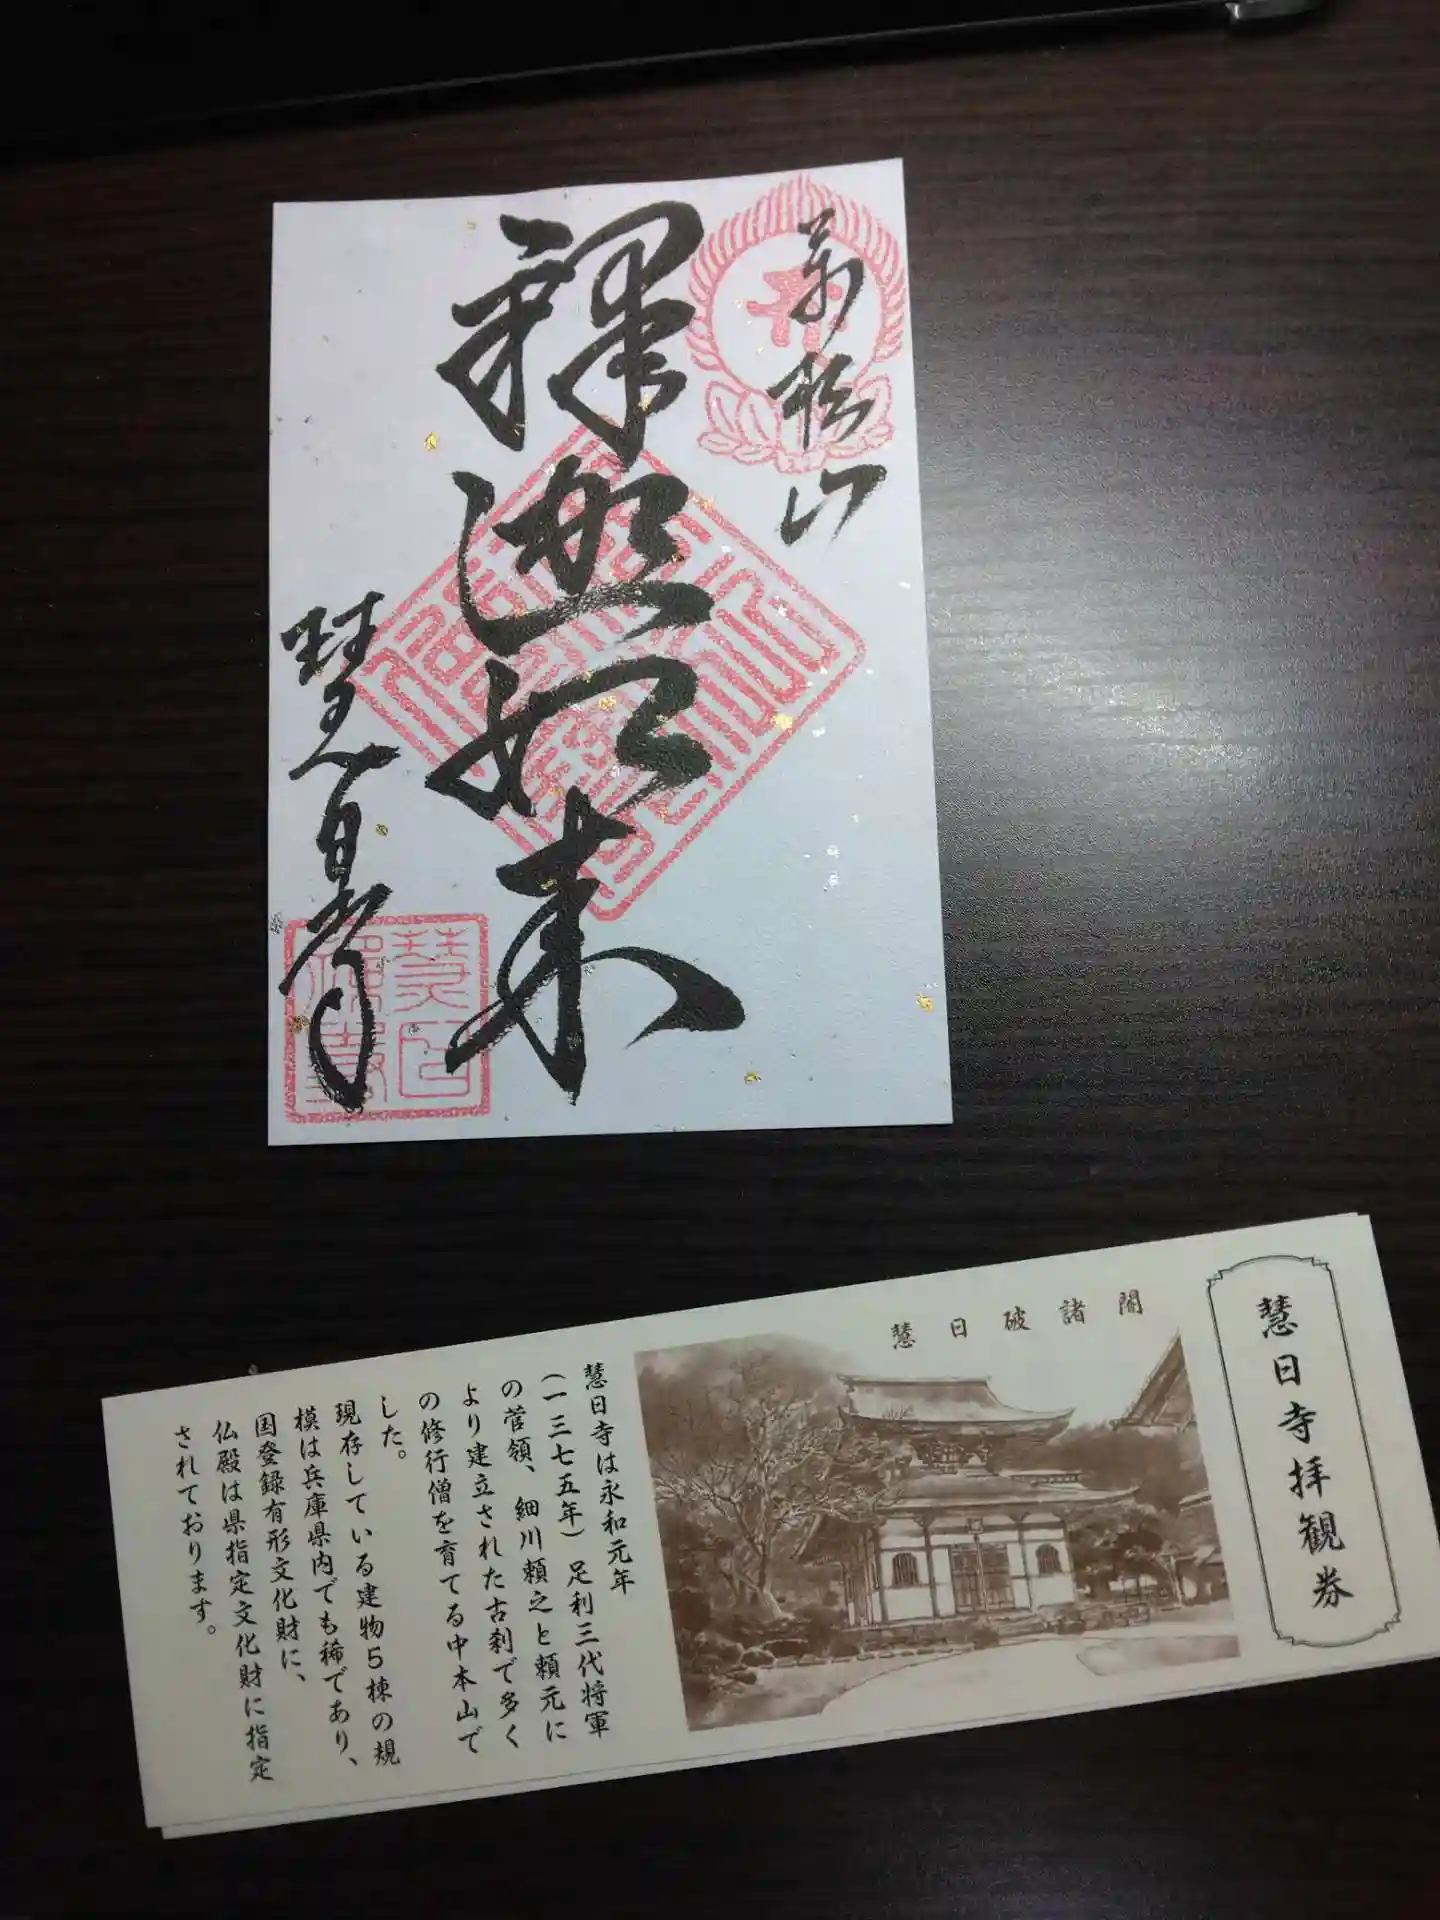 萬松山
釋迦如来
慧日寺
慧日寺拝観券
慧日破諸闇
慧日寺は永和元年
（一三七五年）足利三代将軍
の菅領、細川頼之と頼元に
より建立された古刹で多く
の修行僧を育てる中本山で
した。
現存している建物5棟の規
模は兵庫県内でも稀であり、
国登録有形文化財に、
仏殿は県指定文化財に指定
されております。